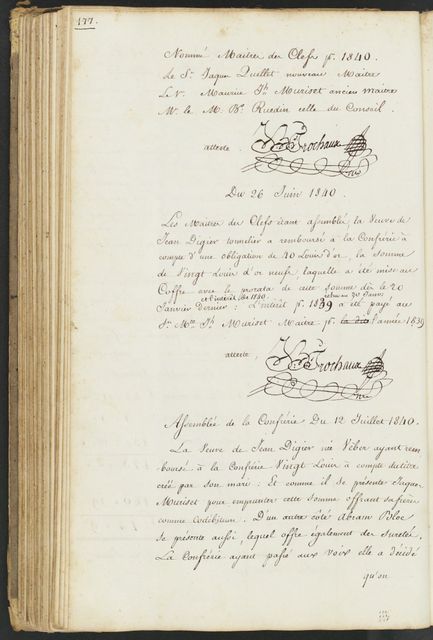 177.
Nommé Maitres des Clefs pr. 1840.
Le Sr. Jaques Quellet nouveau Maitre
Le Sr. Maurice Jh. Muriset ancien maitre
Mr. le M. Bs. Ruedin celle du Conseil.
atteste
JG Frochaux
Du 26 Juin 1840.
Les Maitres des Clefs étant assemblés, la Veuve de
Jean Digier tonnelier a remboursé à la Confrérie à
compte d'une obligation de 40 Louis d'or, la somme
de Vingt Louis d'or neufs, laquelle a été mise au
Coffre avec le prorata de cette somme dès le 20
et l'intérêt de 1840. echu au 20 Janv.
Janvier dernier : L'intérêt pr. 1839 a été payé au
Sr. Mce. Jh. Muriset Maitre pr. la dite l'année 1839
atteste,
JG Frochaux
Assemblée de la Confrérie Du 12 Juillet 1840.
La Veuve de Jean Digier née Véber ayant rem
boursé à la Confrérie Vingt Louis à compte du titre
créé par son mari : Et comme il se présente Jaques
Muriset pour emprunter cette somme offrant sa frère
comme Codébiteur. D'un autre côté Abram Bloc
se présente aussi, lequel offre également des suretés.
La Confrérie ayant passé aux voix elle a décidé
qu'on